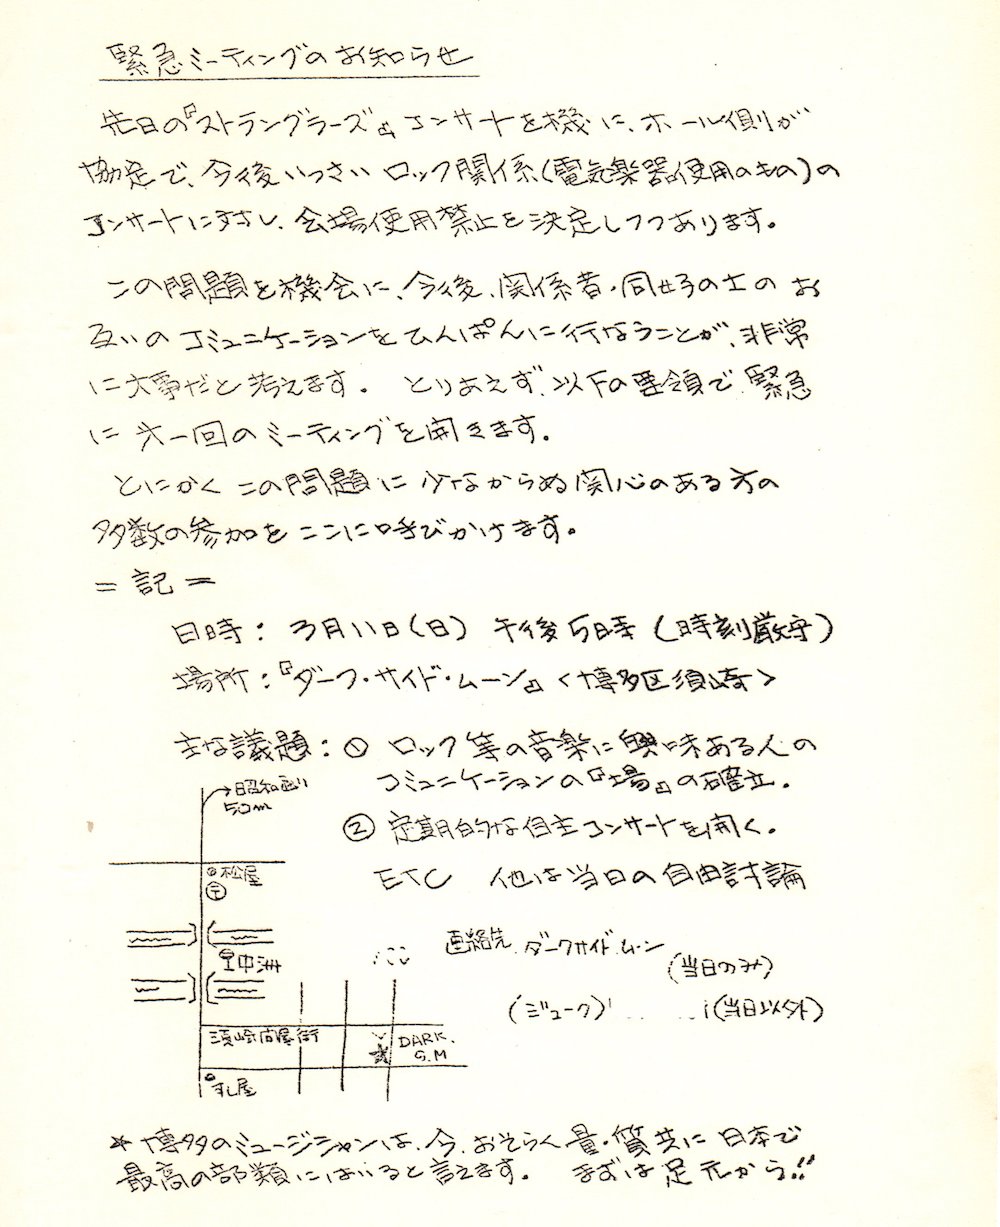 緊急ミーティングのお知らせ
先日の『ストラングラーズ』コンサートを機に、ホール側が
協定で、今後いっさいロック関係(電気楽器使用のもの)の
コンサートに対し、会場使用禁止を決定しつつあります。
この問題を機会に、今後、関係者・同好の士のお
互いのコミュニケーションをひんぱんに行なうことが、非常
に大事だと考えます。とりあえず、以下の要領で、緊急
に第一回のミーティングを開きます。
とにかくこの問題に少なからぬ関心のある方の
多数の参加をここに呼びかけます。
=記=
日時:3月11日(日)午後5時(時刻厳守)
場所:『ダーク・サイド・ムーン』<博多区須崎>
主な議題:① ロック等の音楽に興味ある人の
コミュニケーションの『場』の確立。
② 定期的な自主コンサートを開く。
ETC 他は当日の自由討論
→昭和通り
50m
松屋
〒
中洲
須崎問屋街
DARK.
S.M
すし屋
連絡先 ダークサイドムーン
(当日のみ)
(ジューク) (当日以外)
★博多のミュージシャンは、今、おそらく量・質共に日本で
最高の部類にはいると言えます。まずは足元から!!